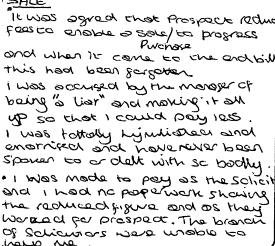 SALE
"It was agred that Prospect reduce
fees to enable a sale/ to progress
Purchase
and when it came to the end bill
this had been forgotten
I was accused by the manager of
being "a liar" and making it all
up so that I could pay less.
I was tottally humiliated and
and have never been
spoken to or delt with so badly.
• I was made to pay as the Solicit
and I had no paperwork showing
the reduced figure and as they
worked for prospect. The branch
of Solicitors were unable to
have me